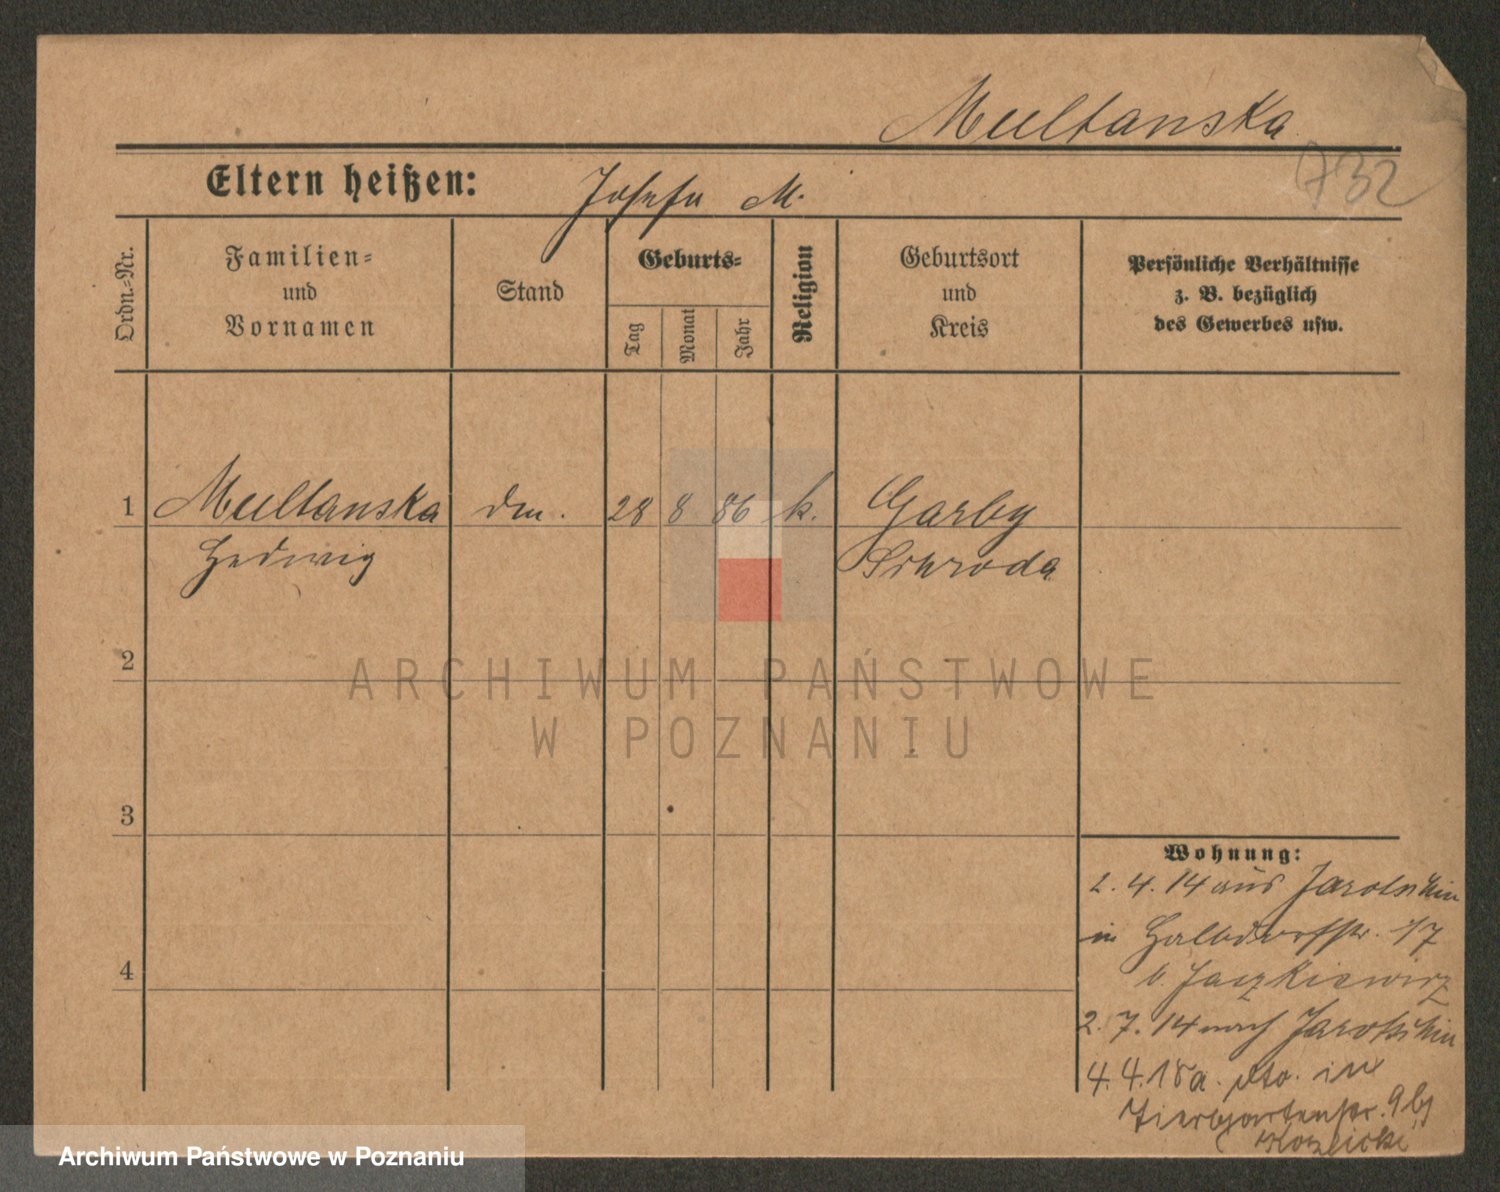 Multanska
732
Eltern heißen: Josefa M.
Ordn.-Nr.
Familien-
und
Vornamen
Stand
Geburts-
Tag
Monat
Jahr
Religion
Geburtsort
und
Kreis
Persönliche Verhältnisse
z. B. bezüglich
des Gewerbes usw.
1 Multanska dm. 28 8 86 k. Garby
Hedwig Schroda
2
ARCHIWUM PAŃSTWOWE
W POZNANIU
3
4
Wohnung:
2. 4. 14 aus Jarotschin
in Halbdorfstr. 17
b. Jaczkiewicz
2. 7. 14 nach Jarotschin
4. 4. 18 a. dto. in
Tiergartenstr. 9 bj
Archiwum Państwowe w Poznaniu